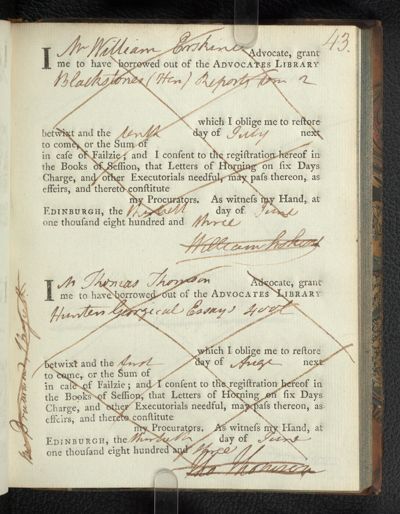 43.
I Mr William Erskine Advocate, grant
me to have borrowed out of the ADVOCATES LIBRARY
Blackstones (Hen) Reports tom 2
which I oblige me to reſtore
betwixt and the tenth day of July next
to come, or the Sum of
in caſe of Failzie; and I conſent to the regiſtration hereof in
the Books of Seſſion, that Letters of Horning on ſix Days
Charge, and other Executorials needful, may paſs thereon, as
effeirs, and thereto conſtitute
my Procurators. As witneſs my Hand, at
EDINBURGH, the day of June
one thouſand eight hundred and three
William Erskine
I Mr Thomas Thomson Advocate, grant
me to have borrowed out of the ADVOCATES LIBRARY
Hunters Georgical Essays 4 vol
which I oblige me to reſtore
betwixt and the first day of Augt next
to come, or the Sum of
in caſe of Failzie; and I conſent to the regiſtration hereof in
the Books of Seſſion, that Letters of Horning on ſix Days
Charge, and other Executorials needful, may paſs thereon, as
effeirs, and thereto conſtitute
my Procurators. As witneſs my Hand, at
EDINBURGH, the thirtieth day of June
one thouſand eight hundred and three
Tho Thomson